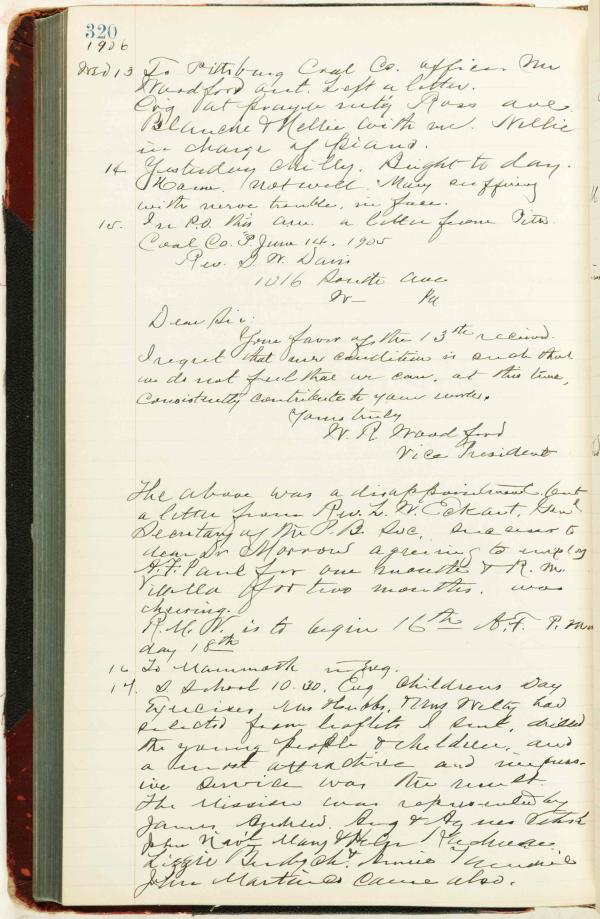 320
1906
Wed 13 To Pittsburg Coal Co. offices. Mr
Woodford out. Left a letter.
Evg at prayer mtg Ross ave.
Blanche & Nellie with me. Nellie
in charge of piano.
14 Yesterday chilly. Bright to day.
Home. not well. Mary suffering
with nerve trouble, in face.
15. In P.O. this a letter from Pitts.
Coal Co. P. June 14. 1905
Rev. D. W. Davis
1016 South Ave
W— Pa
Dear Sir:
Your favor of the 13th received.
I regret that our condition is such that
we do not feel that we can, at this time,
consistently contribute to your work.
Yours truly
W. R. Woodford
Vice President
The above was a disappointment but
a letter from Rev. L. W. Eckart, Genl
Secretary of the P. B. Soc, successor to
dear Dr Morrow agreeing to employ
A. F. Paul for one month & R. M.
for two months. was
cheering.
R. M. V. is to begin 16th A. F. P. mon
day 18th
16 To Mammoth
17. S School 10.30. Evg Childrens Day
Exercises, Mrs Hubbs, & Mrs Welty had
selected from leaflets I sent, drilled
the young people & children, and
a most attractive and impress-
ive service was the result.
The Mission was represented by
James Andrew. Aug & Agnes
John Mary & Helen
Lizzie Annie
John Martin came also.